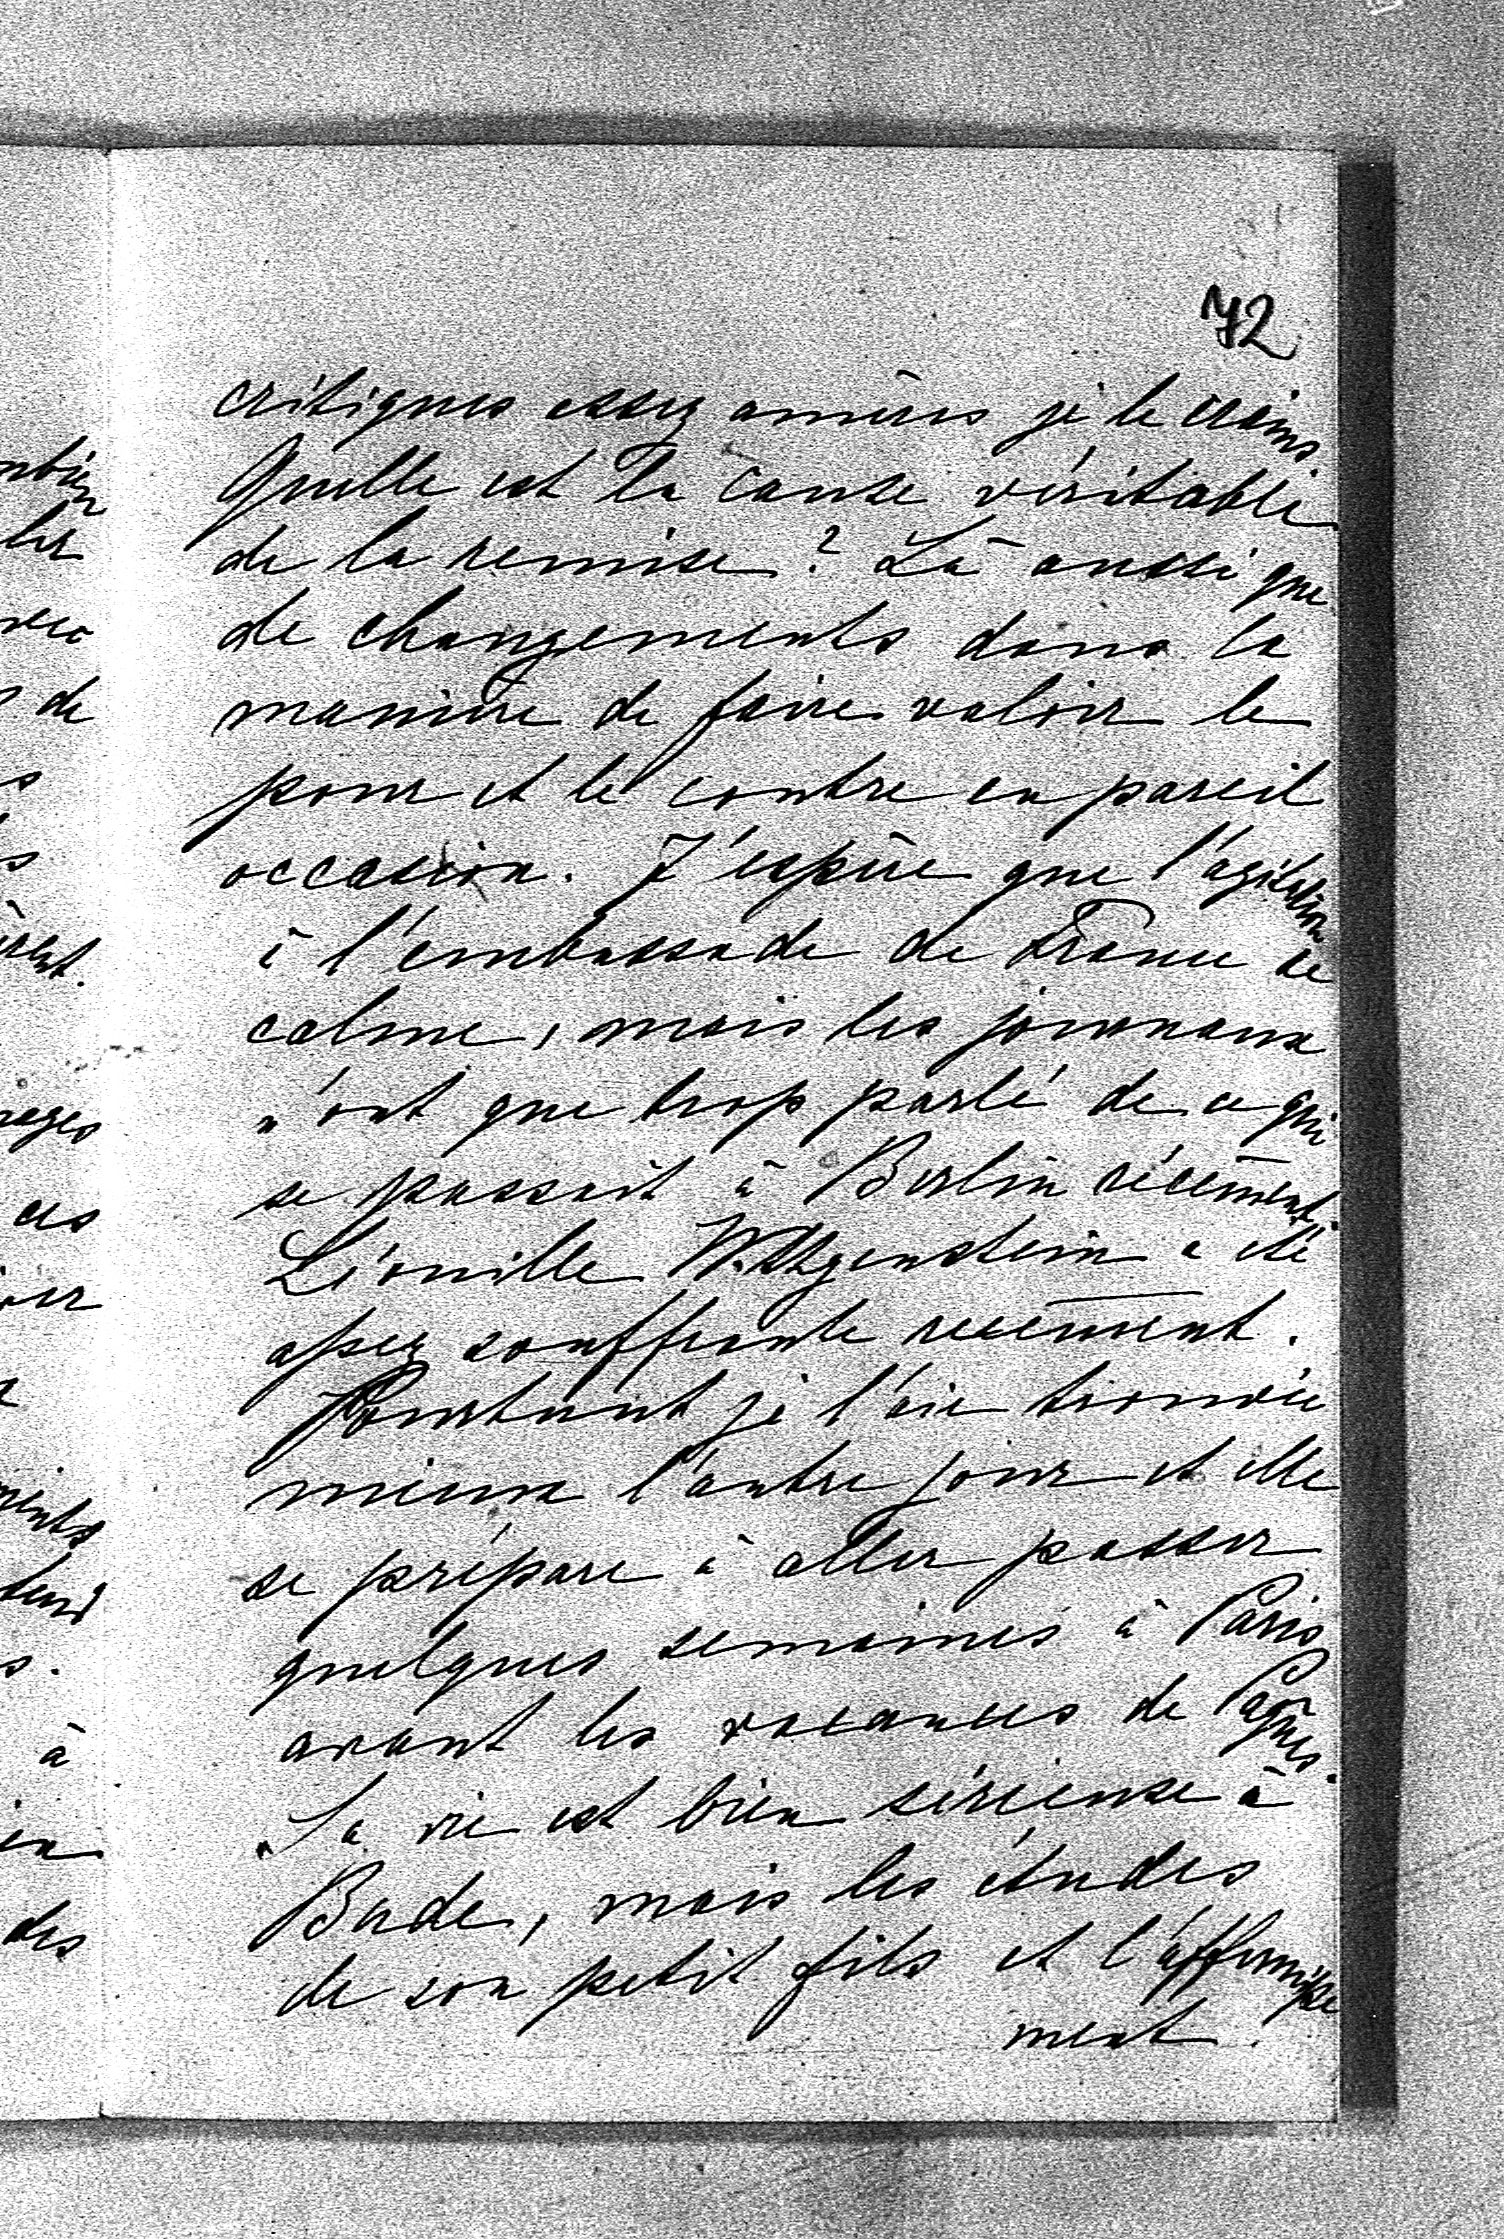 72
critiques assez amères je le crains.
Quelle est la cause véritable
de la remise ? Là aussi que
de changements dans la
manière de faire valoir le
pour et le contre en pareil
occasion. J'espère que l'agitation
à l'embassade de France se
calme, mais les journaux
n'ont que trop parlé de ce qui
se passait à Berlin récem̄ent.
Léonille Wittgenstein a été
assez souffrante recem̄ent.
Pourtant je l'ai trouvée
mieux l'autre jour et elle
se prépare à aller passer
quelques semaines à Paris
avant les vacances de Pâques.
Sa vie est bien sérieuse à
Bade, mais les études
de son petit fils et l'affermisse
ment.